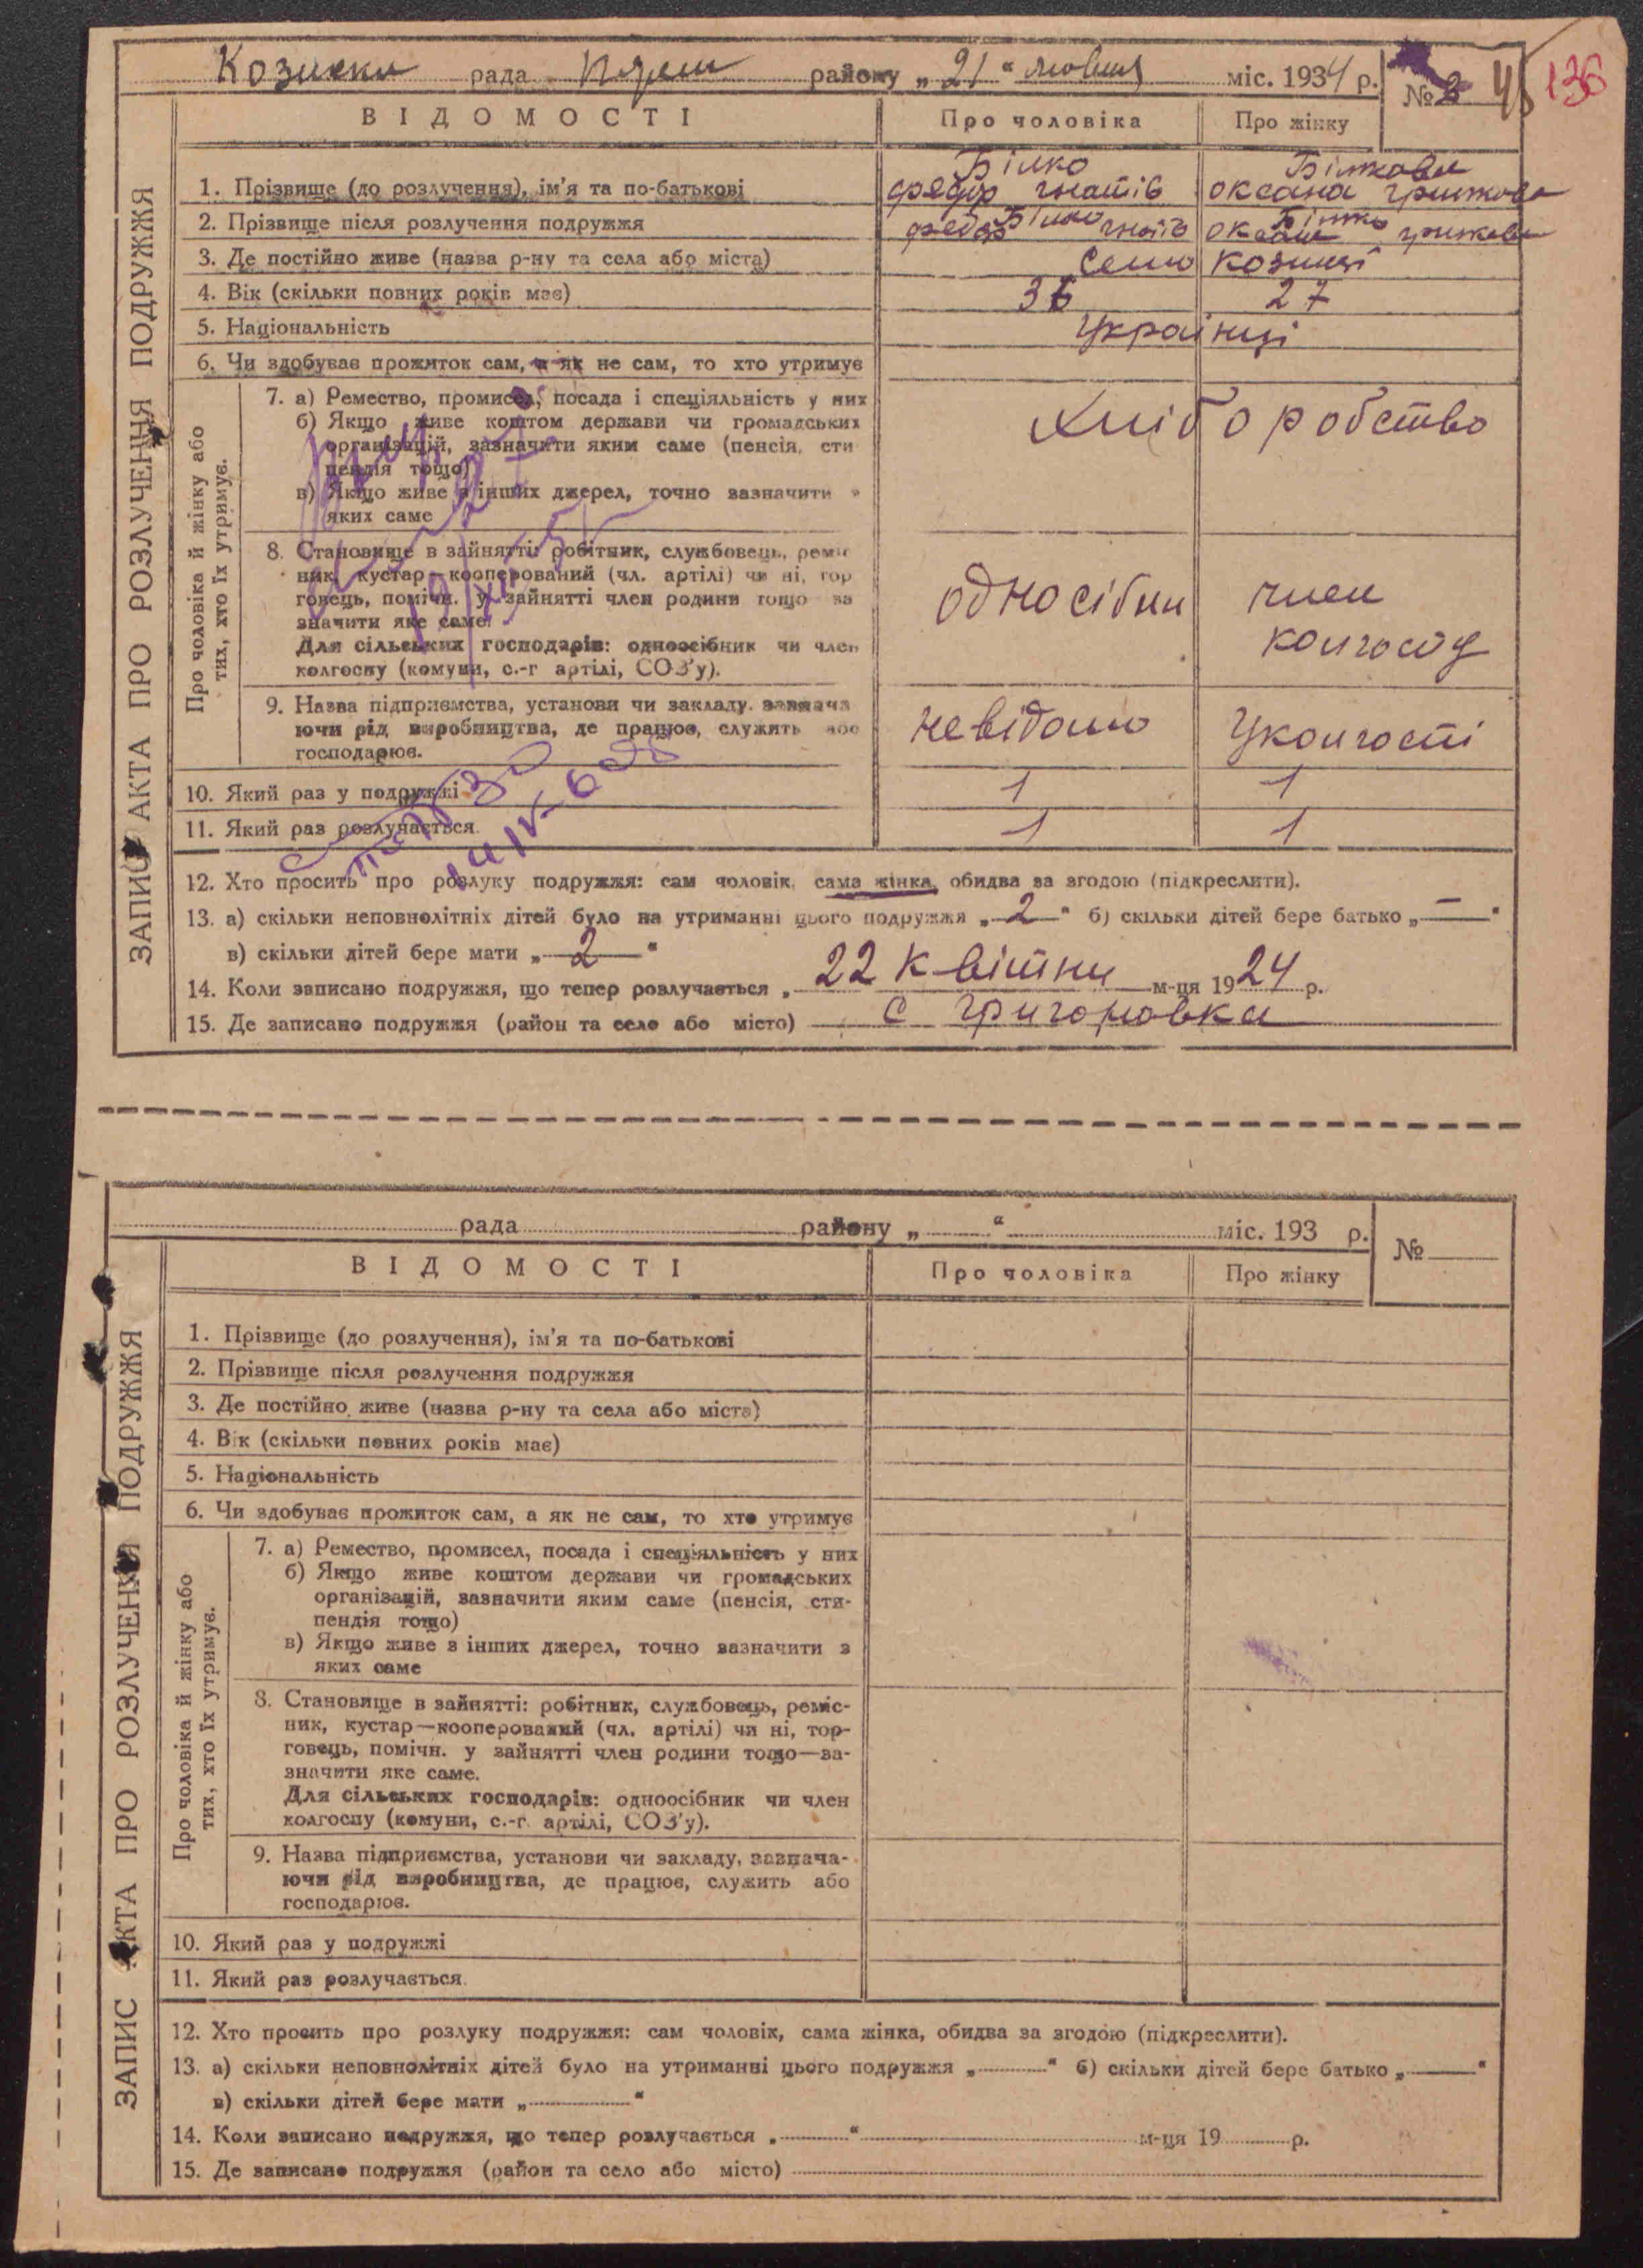 рада району „ 21 “ міс. 1934 р.
№ 136
ВІДОМОСТІ Про чоловіка Про жінку
ЗАПИС АКТА ПРО РОЗЛУЧЕННЯ ПОДРУЖЖЯ
1. Прізвище (до розлучення), ім'я та по-батькові Білко Білкова
федір гнатів оксана грижкова
2. Прізвище після розлучення подружжя Білко Білко
федір оксана
3. Де постійно живе (назва р-ну та села або міста) село козинці
4. Вік (скільки повних років має) 36 27
5. Національність Українці
6. Чи здобуває прожиток сам, а як не сам, то хто утримує
Про чоловіка й жінку або
тих, хто їх утримує.
7. а) Ремество, промисел, посада і спеціяльність у них хліборобство
б) Якщо живе коштом держави чи громадських
організацій, зазначити яким саме (пенсія, сти
пендія тощо)
в) Якщо живе з інших джерел, точно зазначити з
яких саме
8. Становище в зайнятті: робітник, службовець, реміс
ник, кустар—кооперований (чл. артілі) чи ні, тор
говець, помічн. у зайнятті член родини тощо за
значити яке саме.
Для сільських господарів: одноосібник чи член
колгоспу (комуни, с.-г артілі, СОЗ'у).
односібни член
колгоспу
9. Назва підприємства, установи чи закладу, зазнача
ючи рід виробництва, де працює, служить або
господарює.
невідомо Уколгоспі
10. Який раз у подружжі 1 1
11. Який раз розлучається. 1 1
12. Хто просить про розлуку подружжя: сам чоловік, сама жінка, обидва за згодою (підкреслити).
13. а) скільки неповнолітніх дітей було на утриманні цього подружжя „ 2 “ б) скільки дітей бере батько „ — “
в) скільки дітей бере мати „ 2 “
14. Коли записано подружжя, що тепер розлучається „ 22 квітни м-ця 1924 р.
15. Де записано подружжя (район та село або місто) с григоровка
рада району „ “ міс. 193 р.
№
ВІДОМОСТІ Про чоловіка Про жінку
ЗАПИС АКТА ПРО РОЗЛУЧЕННЯ ПОДРУЖЖЯ
1. Прізвище (до розлучення), ім'я та по-батькові
2. Прізвище після розлучення подружжя
3. Де постійно живе (назва р-ну та села або міста)
4. Вік (скільки повних років має)
5. Національність
6. Чи здобуває прожиток сам, а як не сам, то хто утримує
Про чоловіка й жінку або
тих, хто їх утримує.
7. а) Ремество, промисел, посада і спеціяльність у них
б) Якщо живе коштом держави чи громадських
організацій, зазначити яким саме (пенсія, сти-
пендія тощо)
в) Якщо живе з інших джерел, точно зазначити з
яких саме
8. Становище в зайнятті: робітник, службовець, реміс-
ник, кустар—кооперований (чл. артілі) чи ні, тор-
говець, помічн. у зайнятті член родини тощо—за-
значити яке саме.
Для сільських господарів: одноосібник чи член
колгоспу (комуни, с.-г. артілі, СОЗ'у).
9. Назва підприємства, установи чи закладу, зазнача-
ючи рід виробництва, де працює, служить або
господарює.
10. Який раз у подружжі
11. Який раз розлучається.
12. Хто просить про розлуку подружжя: сам чоловік, сама жінка, обидва за згодою (підкреслити).
13. а) скільки неповнолітніх дітей було на утриманні цього подружжя „ “ б) скільки дітей бере батько „ “
в) скільки дітей бере мати „ “
14. Коли записано подружжя, що тепер розлучається „ “ м-ця 19 р.
15. Де записано подружжя (район та село або місто)